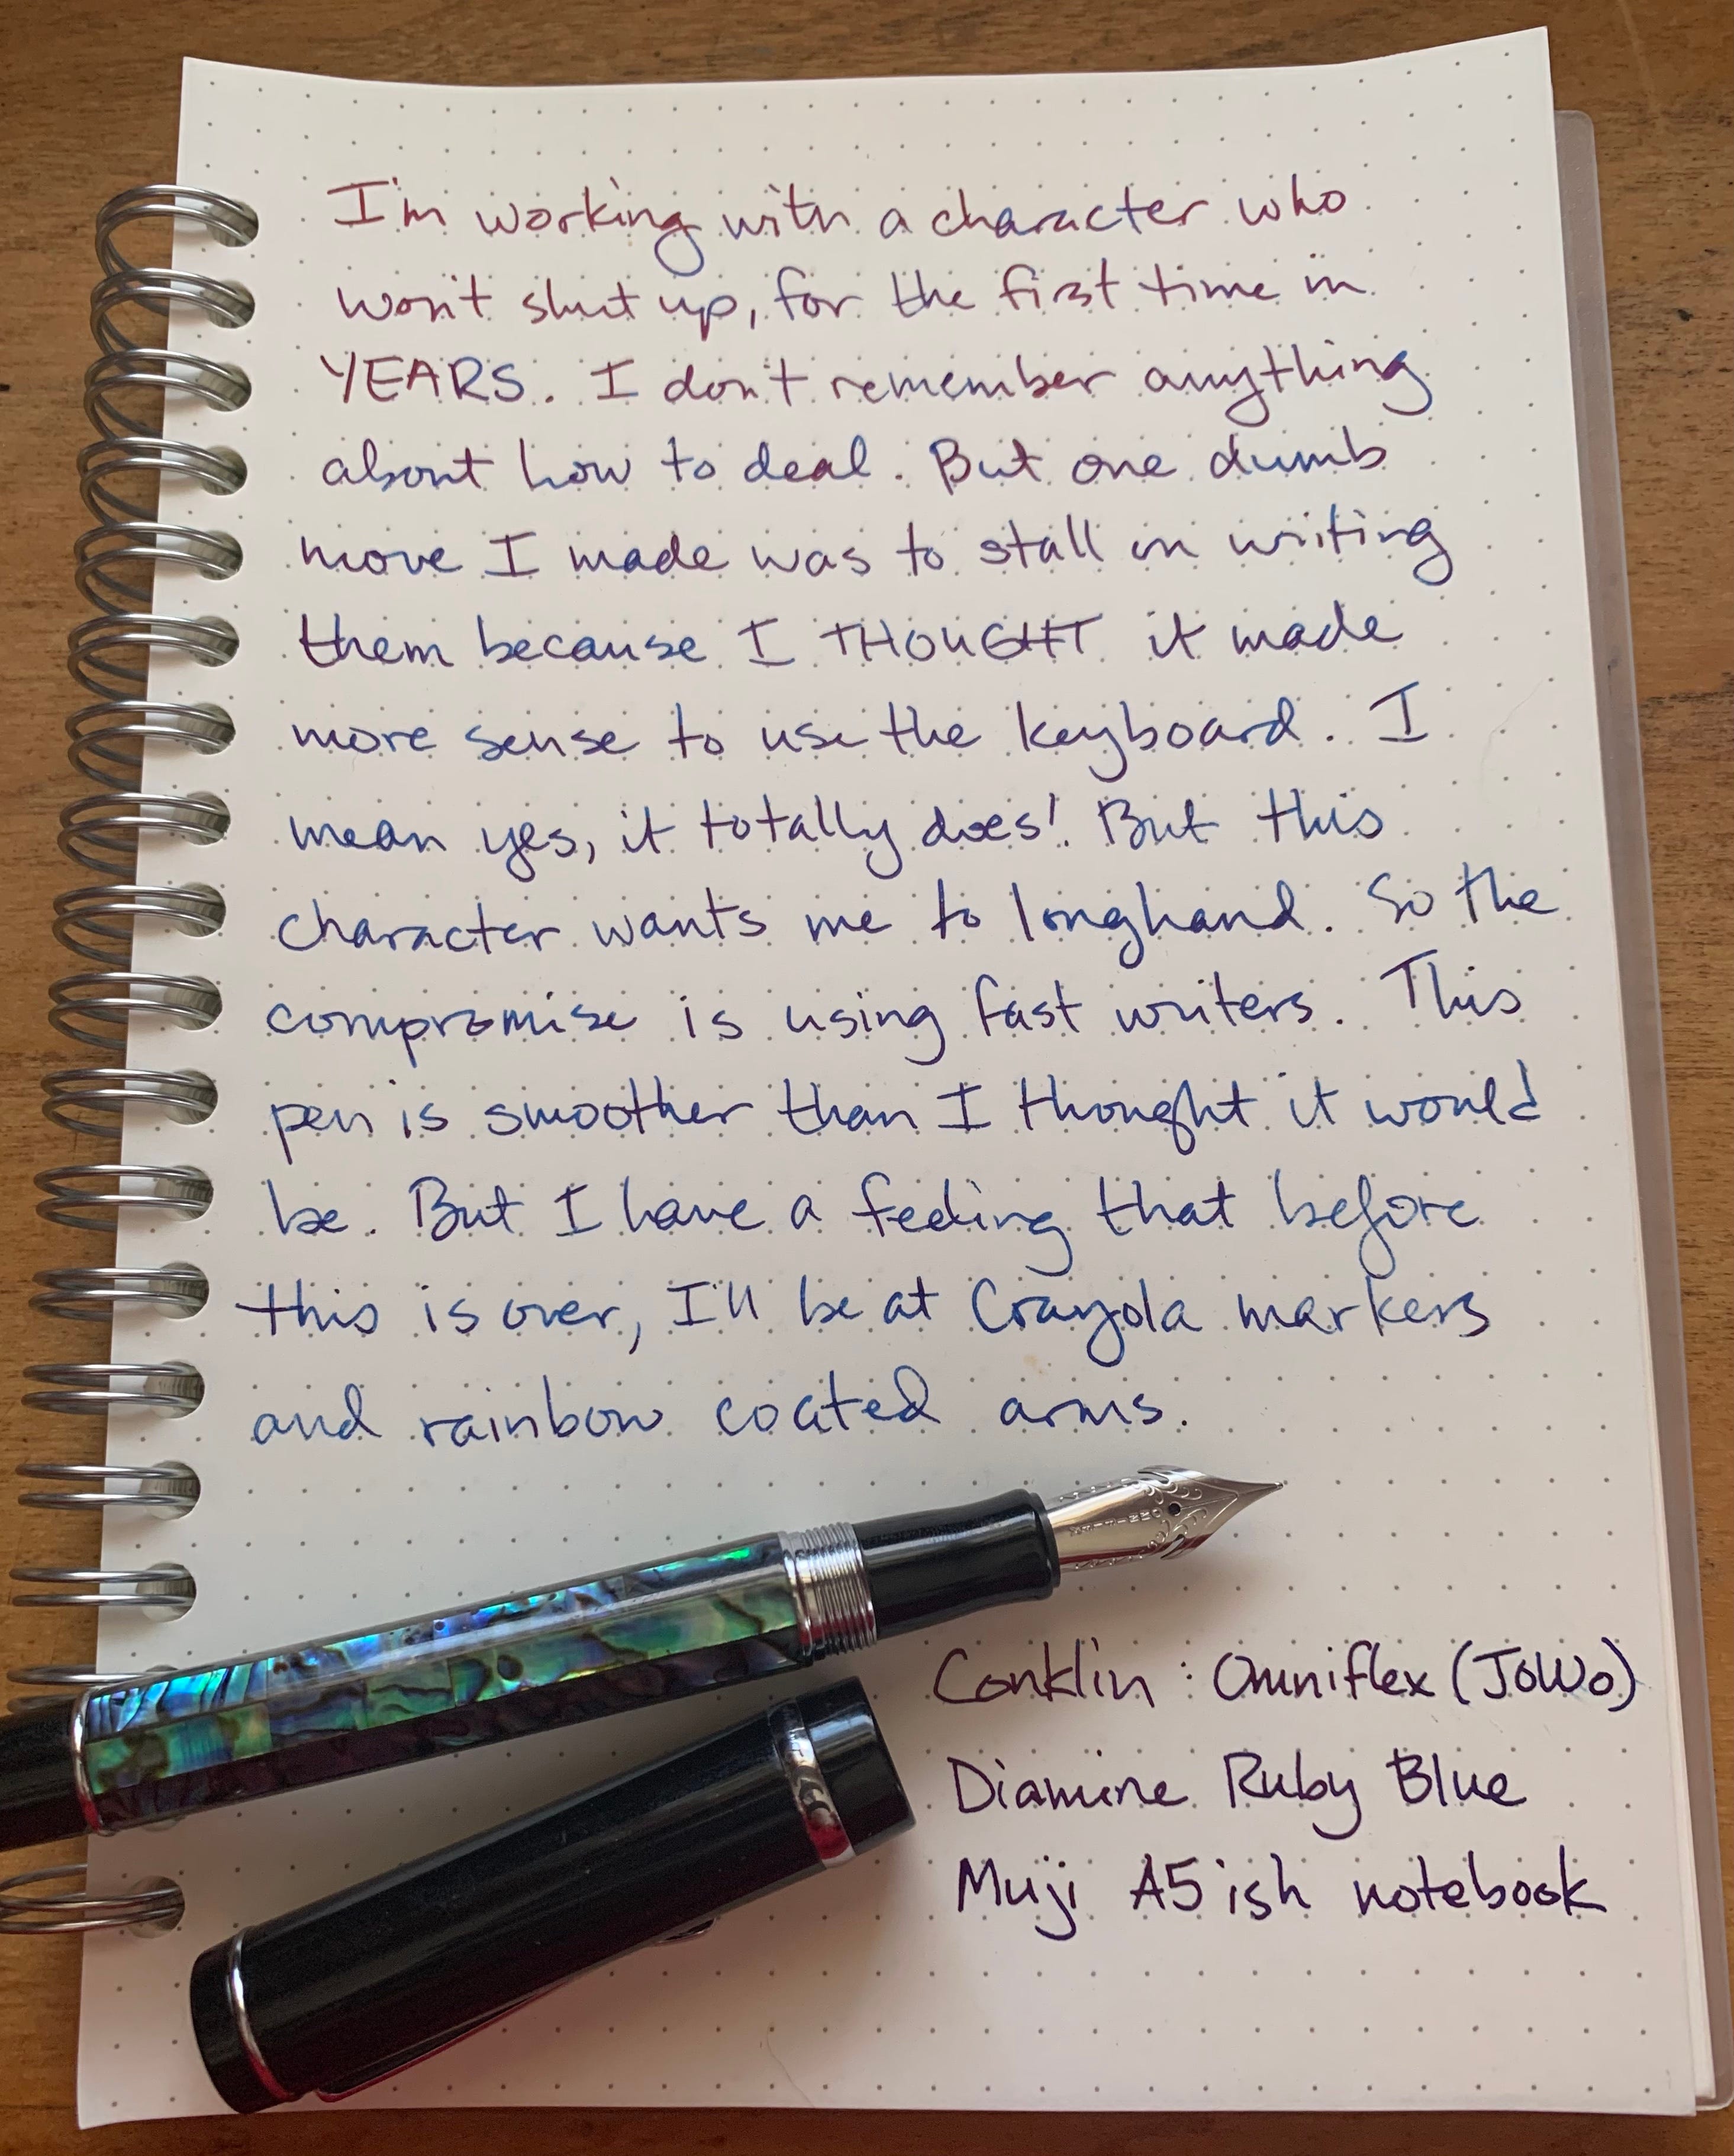 I'm working with a character who
won't shut up, for the first time in
YEARS. I don't remember anything
about how to deal. But one dumb
move I made was to stall in writing
them because I THOUGHT it made
more sense to use the keyboard. I
mean yes, it totally does! But this
character wants me to longhand. So the
compromise is using fast writers. This
pen is smoother than I thought it would
be. But I have a feeling that before
this is over, I'll be at Crayola markers
and rainbow coated arms.
Conklin: Omniflex (JoWo)
Diamine Ruby Blue
Muji A5ish notebook